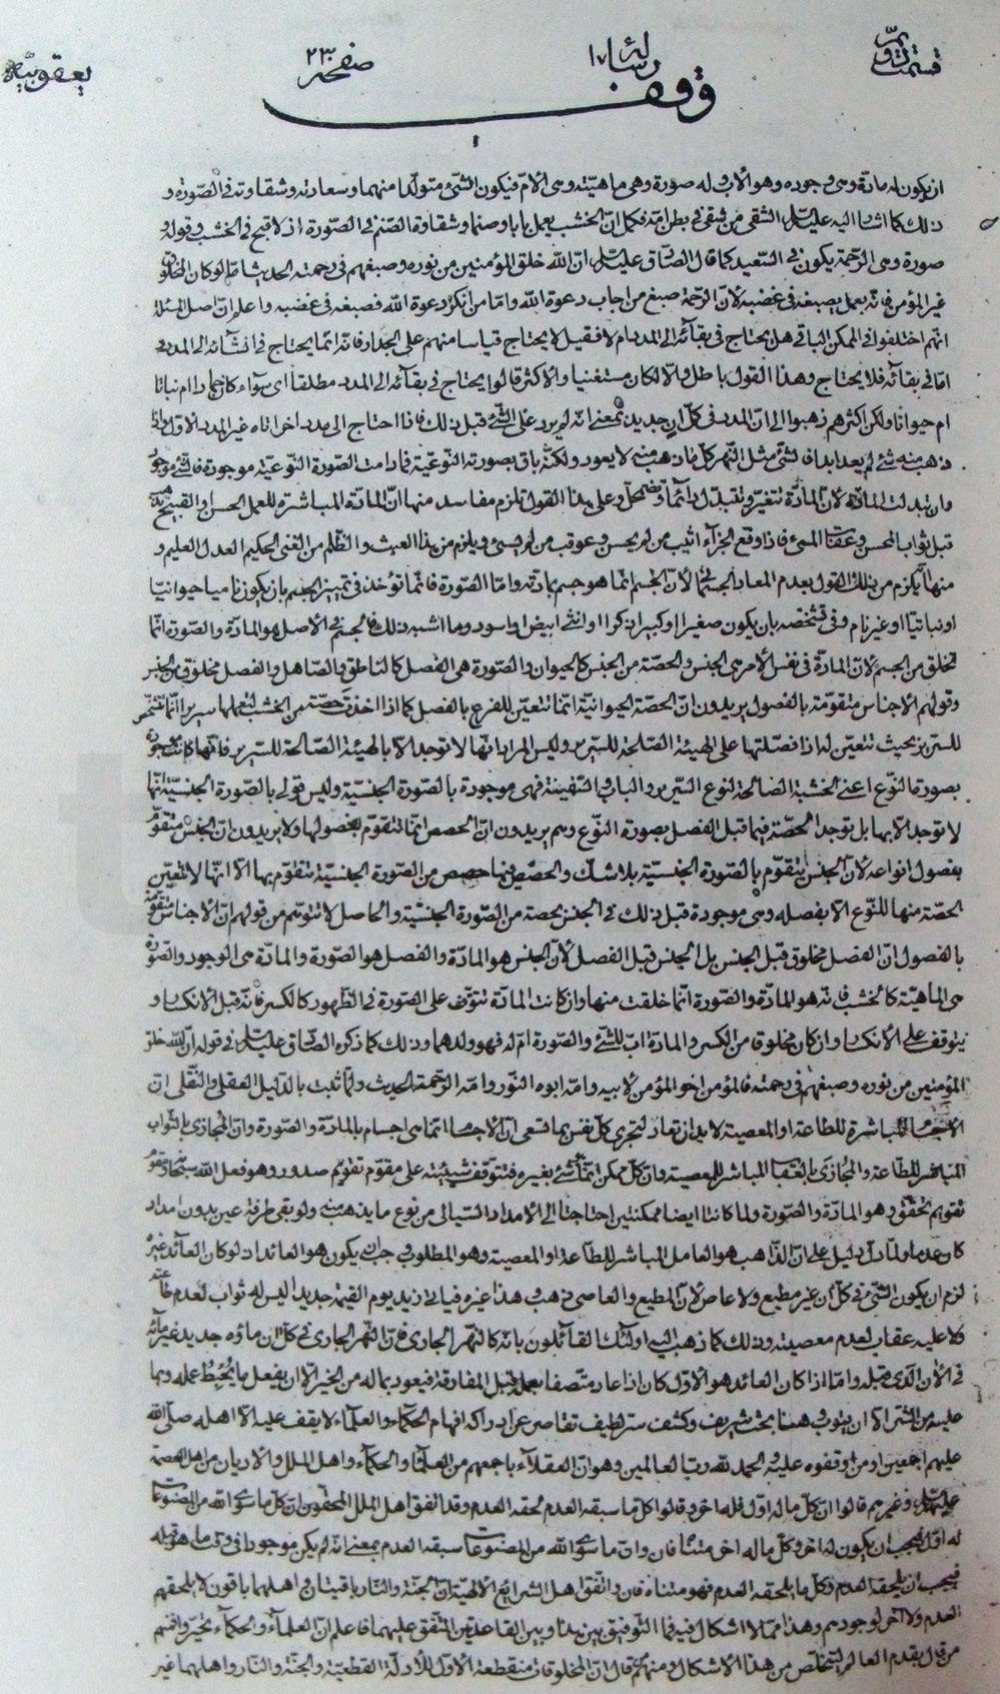 قسمت دویم
رساله ١٧
صفحه ٢٣
یعقوبیه
وقف
ان یکون له مادة وهی وجوده وهو الاب وله صورة وهی ماهیته وهی الام فیکون الشیء متولدا منهما وسعادته وشقاوته فی الصورة و
ذلک کما اشار الیه علیه السلم الشقی من شقی فی بطن امه فکما ان الخشب یعمل بابا وصنما وشقاوة الصنم فی الصورة اذ لا قبح فی الخشب وقوله و
صورة وهی الرحمة یکون فی السعید کما قال الصادق علیه السلم ان الله خلق المؤمنین من نوره وصبغهم فی رحمته الحدیث لو کان المخلوق
غیر المؤمن فانه بعمل یصبغه فی غضبه لان الرحمة صبغ من اجاب دعوة الله واما من انکر دعوة الله فصبغه فی غضبه واعلم ان اصل المسئلة
انهم اختلفوا فی الممکن الباقی هل یحتاج فی بقائه الی المدد ام لا فقیل لا یحتاج قیاسا منهم علی الجدار فانه انما یحتاج فی انشائه الی المدد و
اما فی بقائه فلا یحتاج وهذا القول باطل والا لکان مستغنیا والاکثر قالوا یحتاج فی بقائه الی المدد مطلقا ای سواء کان جمادا ام نباتا
ام حیوانا ولکن اکثرهم ذهبوا الی ان المدد فی کل آن جدید بمعنی انه لم یرد علی الشیء قبل ذلک فاذا احتاج الی مدد اخر اتاه غیر المدد الاول واذا
ذهب منه شیء لم یعد ابدا فالشیء مثل النهر کلما ذهب منه لا یعود ولکنه باق بصورته النوعیة فما دامت الصورة النوعیة موجودة فالشیء موجود
وان تبدلت المادة لان المادة تتغیر وتتبدل دائما وتضمحل وعلی هذا القول تلزم مفاسد منها ان المادة المباشرة للعمل الحسن او القبیح
قبل ثواب المحسن وعقاب المسیء فاذا وقع الجزاء اثیب من لم یحسن وعوقب من لم یسیء ویلزم من هذا العبث والظلم من الغنی الحکیم العدل العلیم و
منها یلزم من ذلک القول بعدم المعاد الجسمانی لان الجسم انما هو جسم بمادته واما الصورة فانما تؤخذ فی تمییز الجسم بان یکون نامیا حیوانیا
او نباتیا او غیر نام وفی تشخصه بان یکون صغیرا او کبیرا ذکرا او انثی ابیض او اسود وما اشبه ذلک فالجسم فی الاصل هو المادة والصورة انما
تخلق من الجسم لان المادة فی نفس الامر هی الجنس والحصة من الجنس کالحیوان والصورة هی الفصل کالناطق والصاهل والفصل مخلوق من الجنس
وقولهم الاجناس متقومة بالفصول یریدون ان الحصة الحیوانیة انما تتعین للفرع بالفصل کما اذا اخذت حصة من الخشب لتعملها سریرا انما تتشخص
للسریر بحیث تتعین له اذا فصلتها علی الهیئة الصالحة للسریر ولیس المراد انها لا توجد الا بالهیئة الصالحة للسریر فانها کانت موجودة
بصورة النوع اعنی الخشبة الصالحة لنوع السریر والباب والسفینة فهی موجودة بالصورة الجنسیة ولیس قولی بالصورة الجنسیة انها
لا توجد الا بها بل توجد الحصة فیما قبل الفصل بصورة النوع وهم یریدون ان الحصص انما تتقوم بفصولها ولا یریدون ان الجنس متقوم
بفصول انواعه لان الجنس یتقوم بالصورة الجنسیة بلا شک والحصص فیها حصص من الصورة الجنسیة تتقوم بها الا انها لا تتعین
الحصة منها للنوع الا بفصله وهی موجودة قبل ذلک فی الجنس بحصة من الصورة الجنسیة والحاصل لا تتوهم من قولهم ان الاجناس متقومة
بالفصول ان الفصل مخلوق قبل الجنس بل الجنس قبل الفصل لان الجنس هو المادة والفصل هو الصورة والمادة هی الوجود والصورة
هی الماهیة کالخشب فانه هو المادة والصورة انما خلقت منها وان کانت المادة تتوقف علی الصورة فی الظهور کالکسر فانه قبل الانکسار و
یتوقف علی الانکسار وان کان مخلوقا من الکسر والمادة اب للشیء والصورة ام له فهو ولدهما وذلک کما ذکره الصادق علیه السلم فی قوله ان الله خلق
المؤمنین من نوره وصبغهم فی رحمته فالمؤمن اخو المؤمن لابیه وامه ابوه النور وامه الرحمة الحدیث ولما ثبت بالدلیل العقلی والنقلی ان
الاجسام المباشرة للطاعة او المعصیة لابد ان تعاد لتجزی کل نفس بما تسعی ان الاجسام انما هی اجسام بالمادة والصورة وان المجازی بالثواب
المباشر للطاعة والمجازی بالعقاب المباشر للمعصیة وان کل ممکن شیء بغیره فتتوقف شیئیته علی مقوم تقوم صدور وهو فعل الله سبحانه ومقوم
تقوم تحقق وهو المادة والصورة ولما کانتا ایضا ممکنتین احتاجتا الی الامداد السیالی من نوع ما یذهب منه ولو بقی طرفة عین بدون امداد
کان عدما ولما دل الدلیل علی ان الذاهب هو العامل المباشر للطاعة او المعصیة وهو المطلوب وجب ان یکون هو العائد اذ لو کان العائد غیره
لزم ان یکون الشیء فی کل آن غیر مطیع ولا عاص لان المطیع والعاصی ذهب وهذا غیره فیاتی زید یوم القیمة جدیدا لیس له ثواب لعدم طاعته
ولا علیه عقاب لعدم معصیته وذلک کما ذهب الیه اولئک القائلون بانه کالنهر الجاری فان النهر الجاری فی کل ان ماؤه جدید غیر مائه
فی الآن الذی قبله واما اذا کان العائد هو الاول کان اذا عاد متصفا بعمله قبل المفارقة فیعود بما له من الخیر الا ان یفعل ما یحبط عمله وبما
علیه من الشر الا ان یتوب وههنا بحث شریف وکشف سر لطیف تقاصر عن ادراکه افهام الحکماء والعلماء لا یقف علیه الا اهله صلی الله
علیهم اجمعین او من اوقفوه علیه والحمد لله رب العالمین وهو ان العقلاء باجمعهم من العلماء والحکماء واهل الملل والادیان من اهل العصمة
علیهم السلم وغیرهم قالوا ان کل ما له اول فله اخر وقالوا کل ما سبقه العدم لحقه العدم وقد اتفق اهل الملل المحقون ان کل ما سوی الله من المصنوعات
له اول فیجب ان یکون له اخر وکل ما له اخر متناه فان وان ما سوی الله من المصنوعات سبقه العدم بمعنی انه لم یکن موجودا فی وقت ما هو قبله
فیجب ان یلحقه العدم وکل ما یلحقه العدم فهو متناه فان واتفق اهل الشرائع الالهیة ان الجنة والنار باقیتان واهلهما باقون لا یلحقهم
العدم ولا اخر لوجودهم وهذا مما لا اشکال فیه فما التوفیق بین هذا وبین القاعدتین المتفق علیهما فاعلم ان العلماء والحکماء تحیروا فمنهم
من قال بقدم العالم لیتخلص من هذا الاشکال ومنهم من قال ان المخلوقات منقطعة الاول للادلة القطعیة والجنة والنار واهلهما غیر